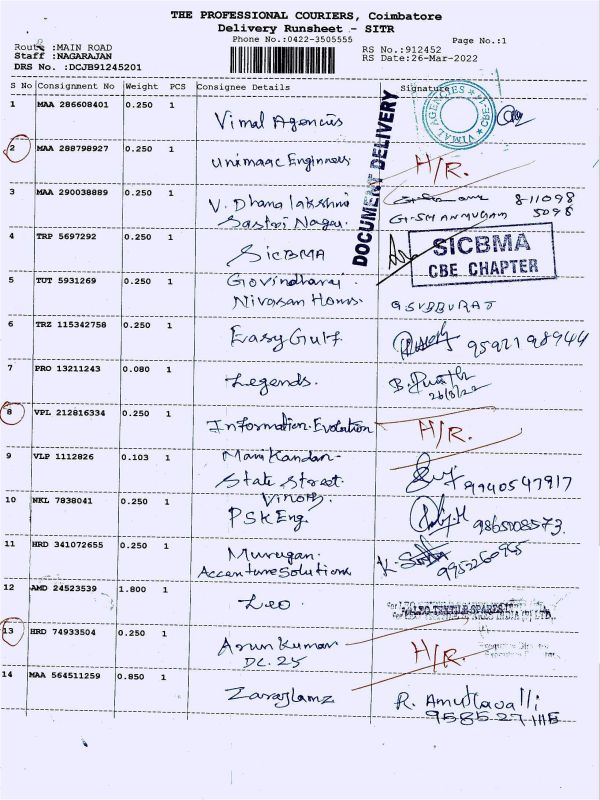 THE PROFESSIONAL COURIERS, Coimbatore
Delivery Runsheet - SITR
Phone No.:0422-3505555
Page No.:1
Route :MAIN ROAD
RS No.:912452
Staff :NAGARAJAN
RS Date:26-Mar-2022
DRS No. :DCJB91245201
S No Consignment No Weight PCS Consignee Details Signature
1 MAA 286608401 0.250 1 Vimal Agencies
VIMAL AGENCIES CBE-1
DOCUMENT DELIVERY
2 MAA 288798927 0.250 1 Unimaac Engineers H/R.
3 MAA 290038889 0.250 1 V. Dhanalakshmi 811098
Sastri Nagar. G. SHANMUGAM 5098
4 TRP 5697292 0.250 1 SICBMA
SICBMA
CBE CHAPTER
5 TUT 5931269 0.250 1 Govindharaj.
Nivasan Homs. GSUBBURAJ
6 TRZ 115342758 0.250 1 Easy Gulf. 9592198944
7 PRO 13211243 0.080 1 Legends. B.
26/3/22
8 VPL 212816334 0.250 1 Information Evolution H/R.
9 VLP 1112826 0.103 1 Manikandan
State Street. 9940547917
10 NKL 7838041 0.250 1 Vinoth
PSK Eng.
11 HRD 341072655 0.250 1 Murugan.
Accenture Solutions K.
12 AMD 24523539 1.800 1 Leo
13 HRD 74933504 0.250 1 Arun Kumar H/R.
DC. 25
14 MAA 564511259 0.850 1 Zaraglamz R. Amuthavalli